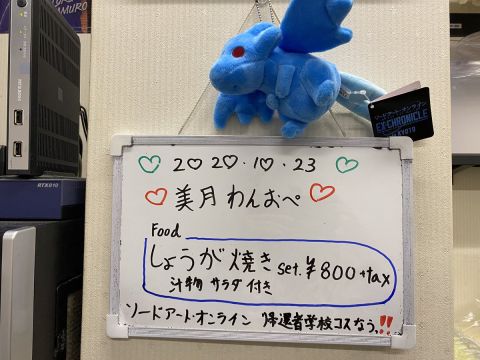 AMURO
RTX810
ソードアート・オンライン
EX-CHRONICLE
2020・10・23
美月わんおぺ
Food
しょうが焼き set.¥800+tax
汁物 サラダ付き
ソードアート・オンライン 帰還者学校コスなう!!